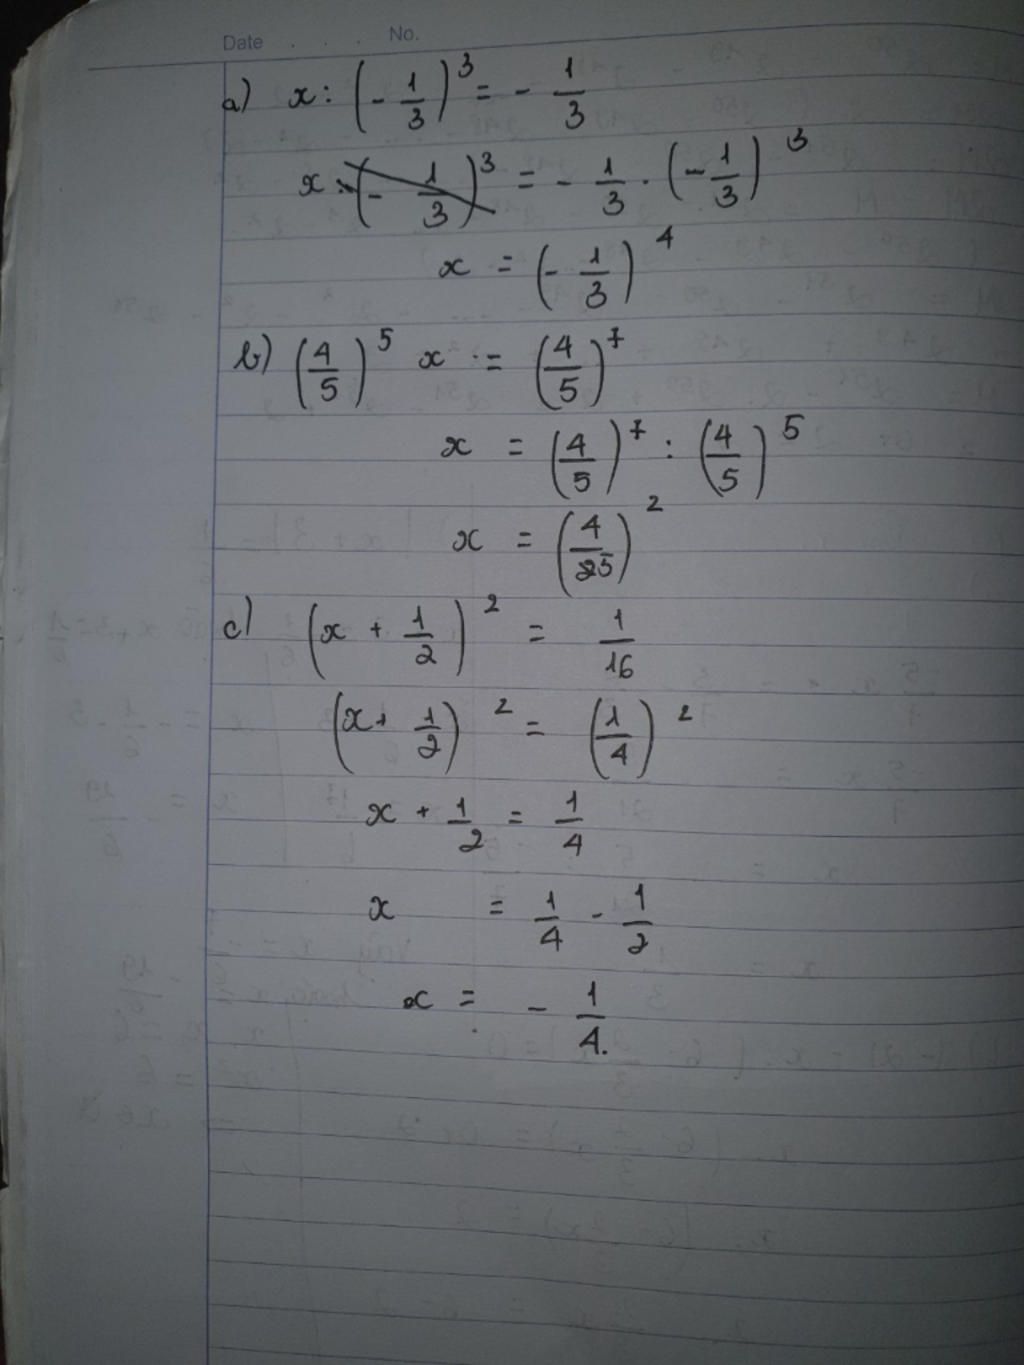 Date . . . No.
a) x : (-1/3)^3 = -1/3
x : (-1/3)^3 = -1/3 . (-1/3)^3
x = (-1/3)^4
b) (4/5)^5 x = (4/5)^7
x = (4/5)^7 : (4/5)^5
x = (4/25)^2
c) (x + 1/2)^2 = 1/16
(x + 1/2)^2 = (1/4)^2
x + 1/2 = 1/4
x = 1/4 - 1/2
x = -1/4.